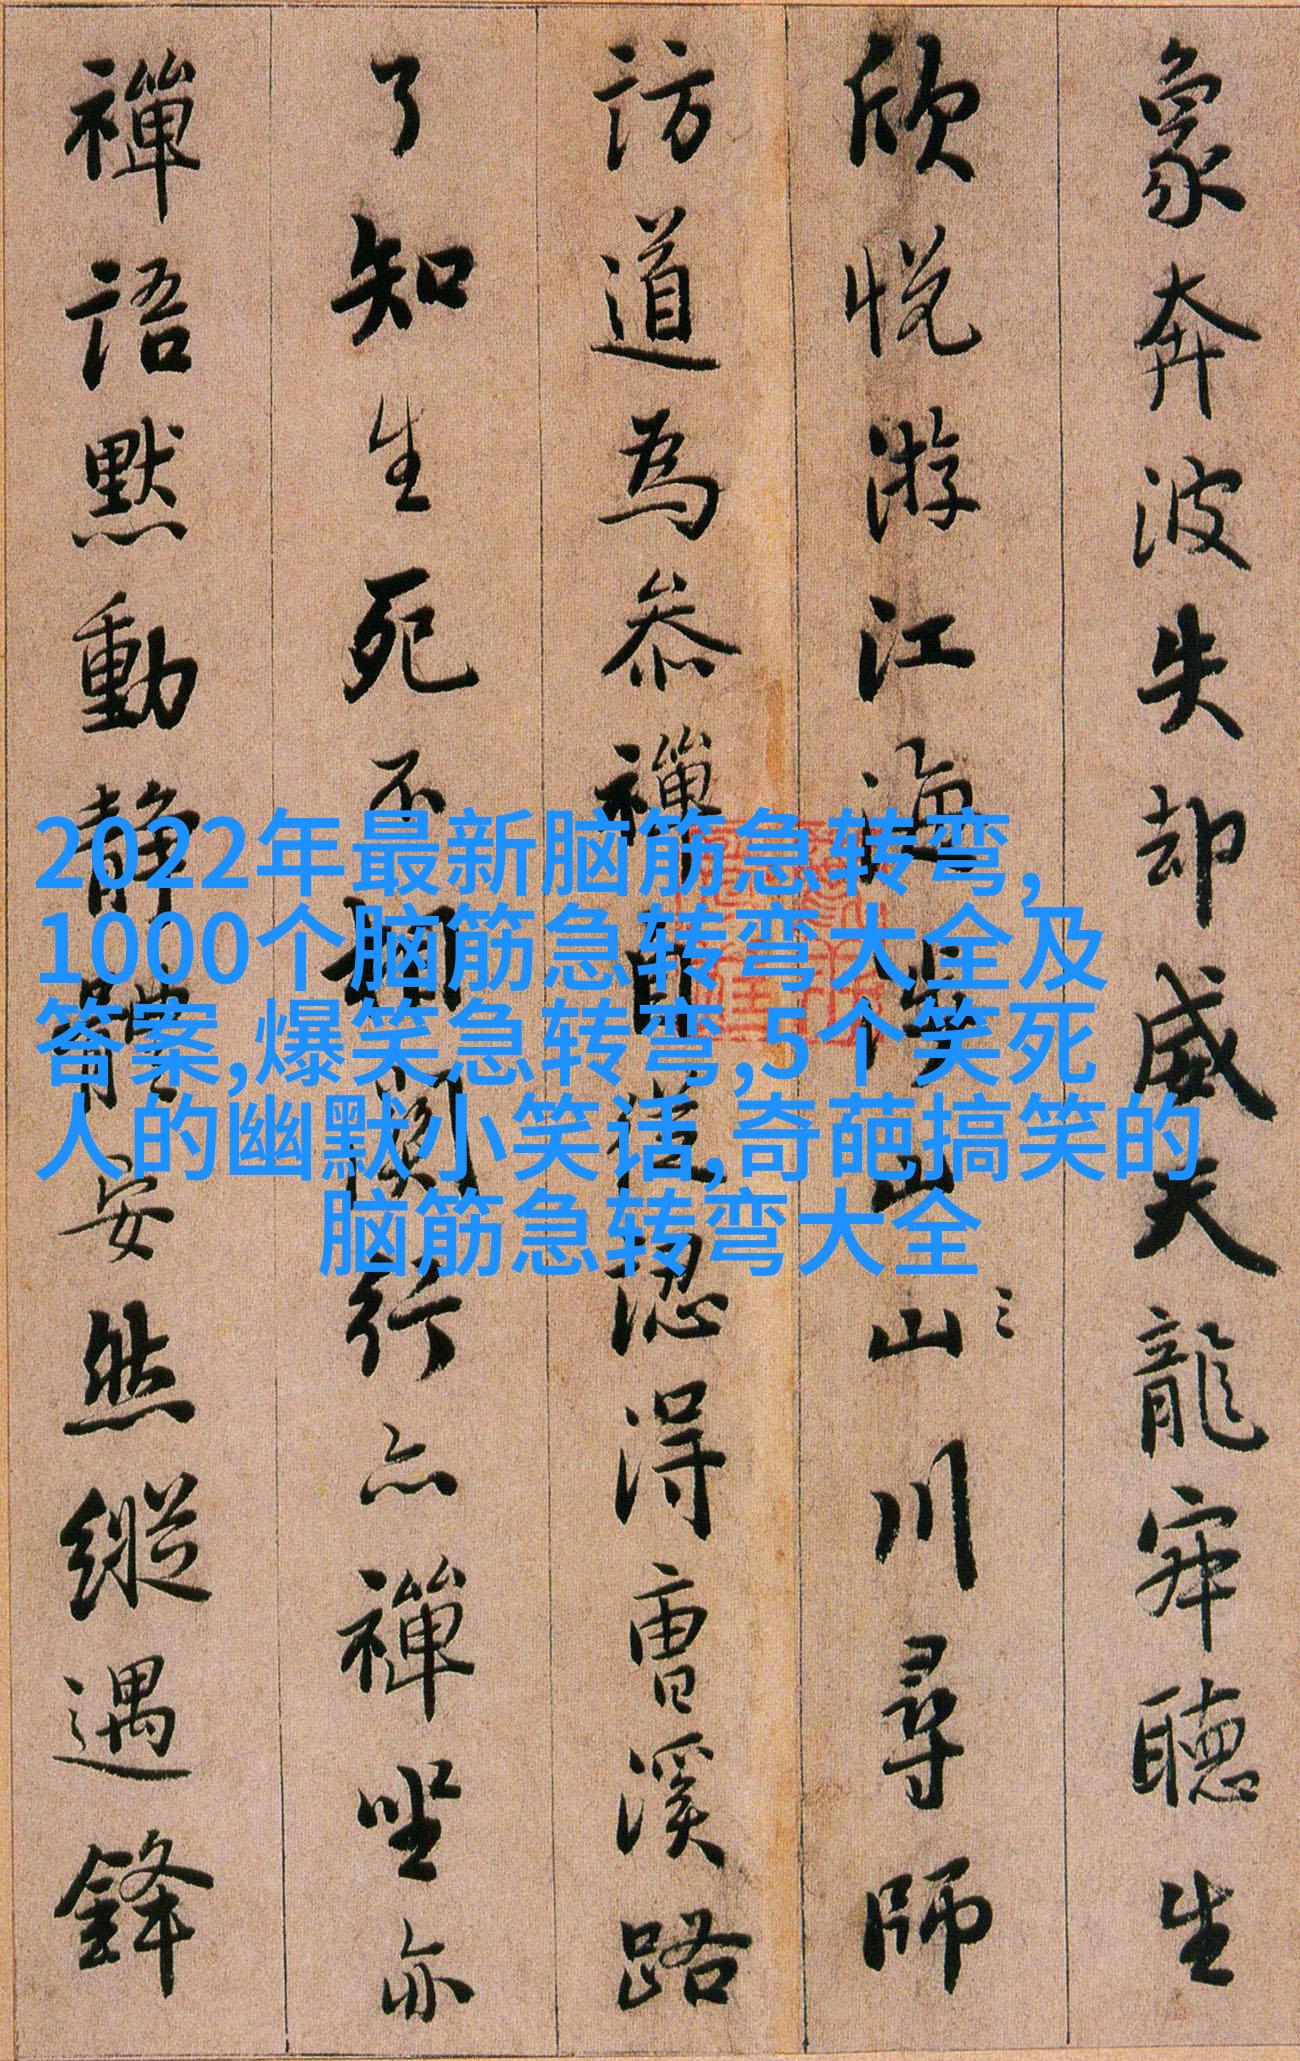 象奔波失却威天龍寂聽生
欣悅游江海涉山山川尋師
訪道為叅禪自從認得曹溪路
了知生死不相關行亦禪坐亦
禪語默動靜體安然縱遇鋒
2022年最新脑筋急转弯,
1000个脑筋急转弯大全及
答案,爆笑急转弯,5个笑死
人的幽默小笑话,奇葩搞笑的
脑筋急转弯大全